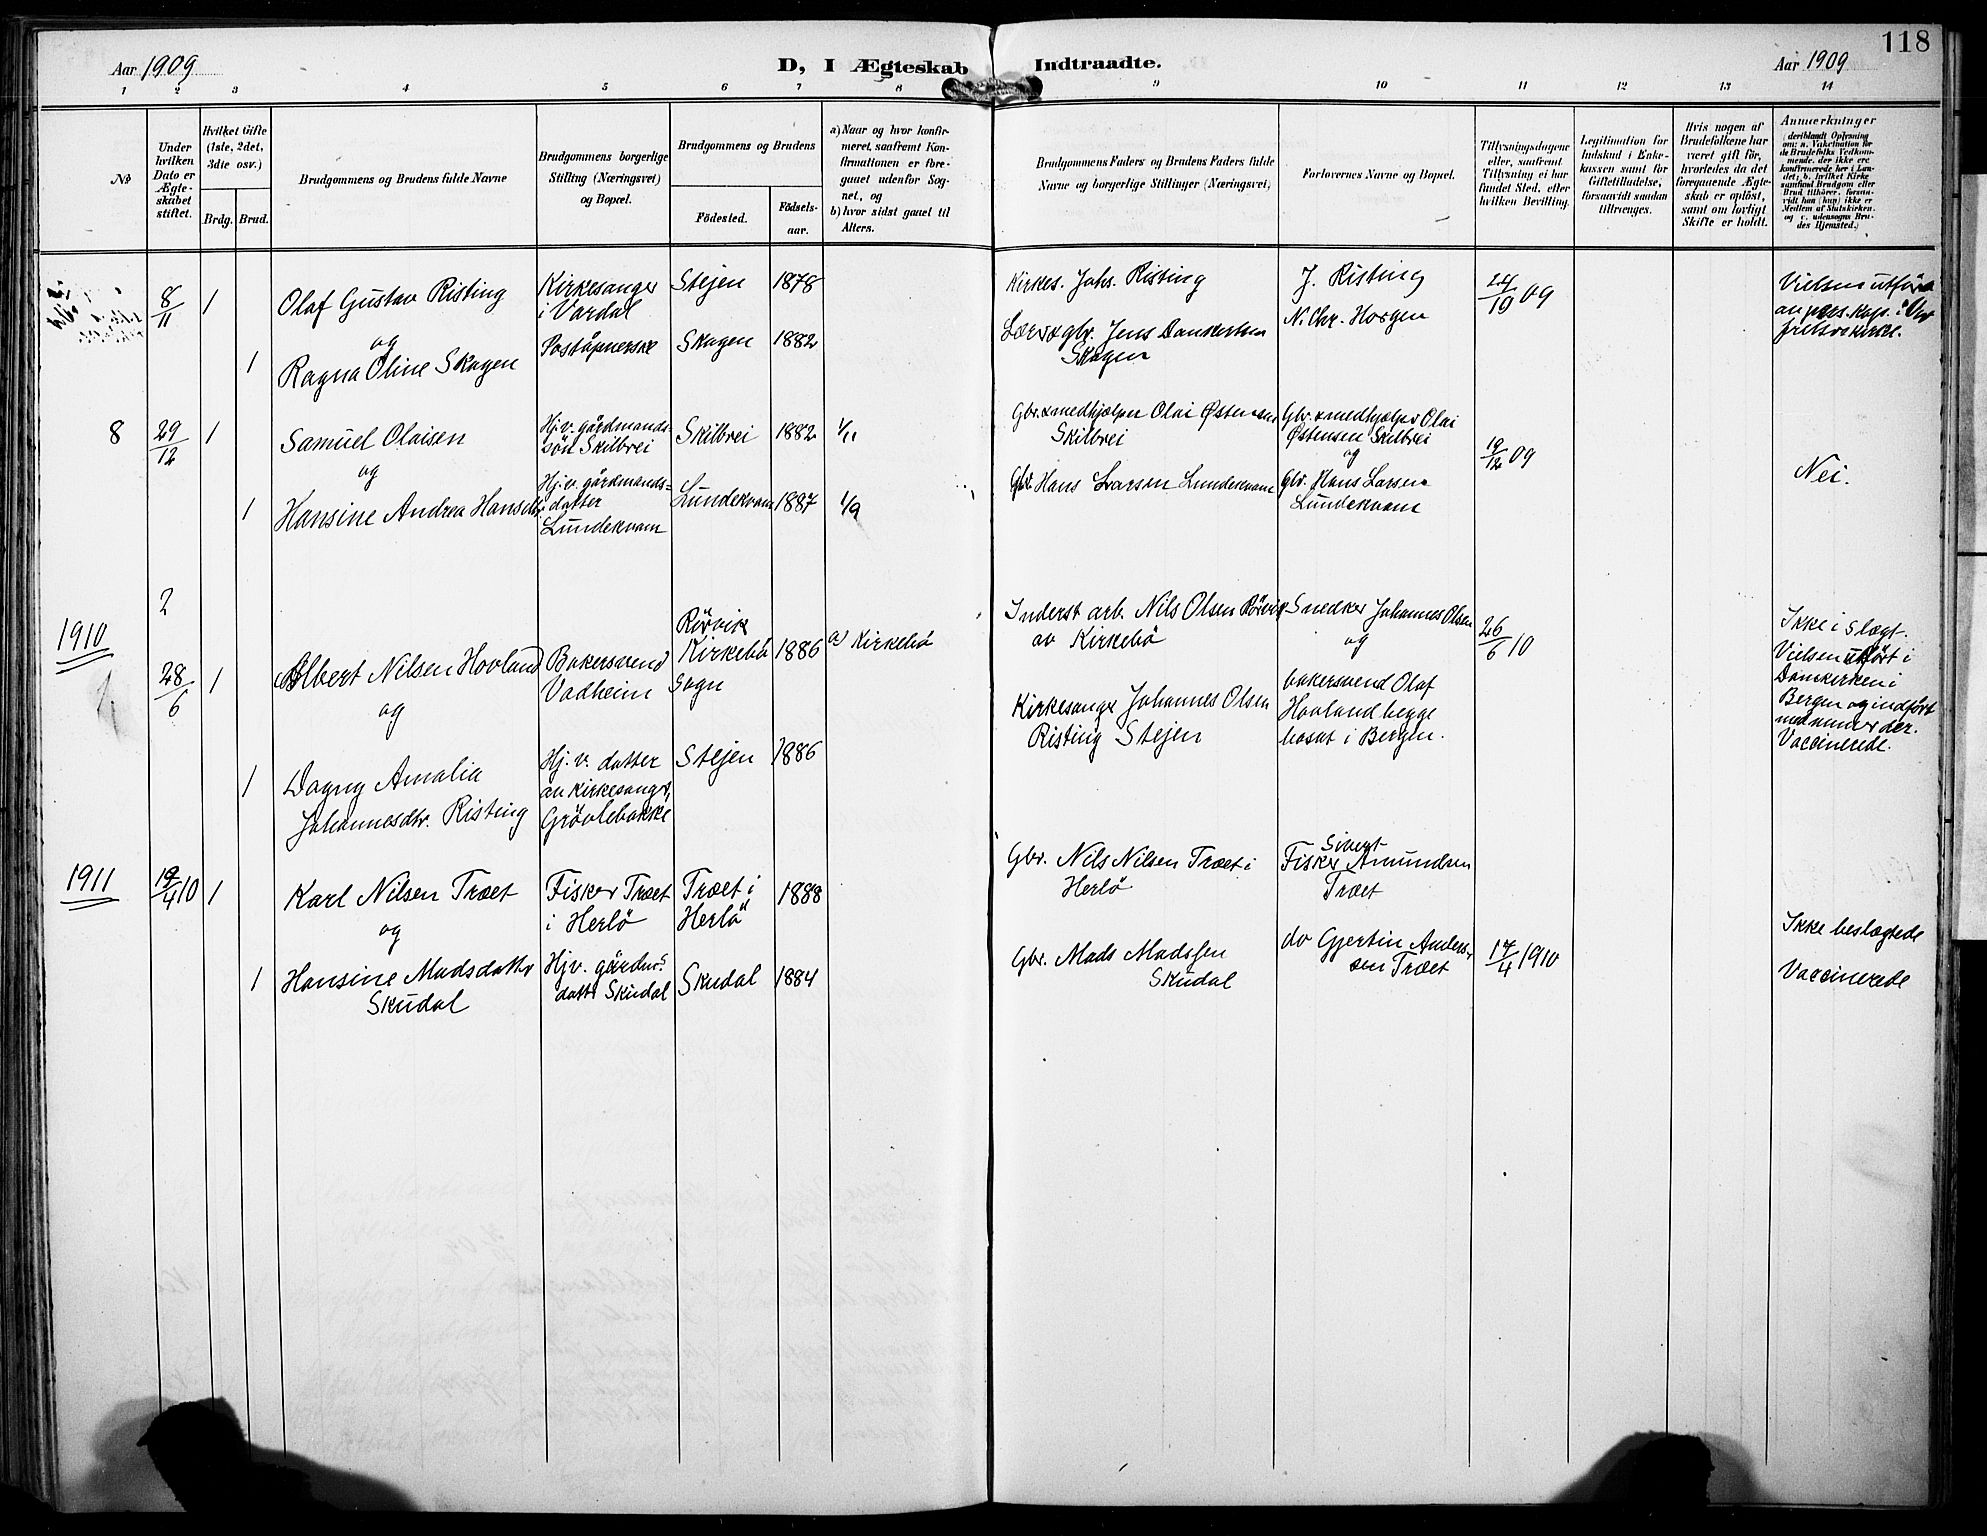 118
Aar 1909
D, I Ægteskab Indtraadte.
Aar 1909
1 2 3 4 5 6 7 8 9 10 11 12 13 14
No
Under hvilken Dato er Ægteskabet stiftet.
Hvilket Gifte (1ste, 2det, 3die osv.)
Brdg. Brud.
Brudgommens og Brudens fulde Navne
Brudgommens borgerlige Stilling (Næringsvei) og Bopæl.
Brudgommens og Brudens
Fødested.
Fødselsaar.
a) Naar og hvor konfirmeret, saafremt Konfirmationen er foregaaet udenfor Sognet, og
b) hvor sidst gaaet til Alters.
Brudgommens Faders og Brudens Faders fulde Navne og borgerlige Stillinger (Næringsvei)
Forlovernes Navne og Bopæl.
Tillysningsdagene eller, saafremt Tillysning ei har fundet Sted, efter hvilken Bevilling.
Legitimation for Indskud i Enkekassen samt for Giftetilladelse, forsaavidt saadan tiltrænges.
Hvis nogen af Brudefolkene har været gift før, hvorledes da det foregaaende Ægteskab er opløst, samt om lovligt Skifte er holdt.
Anmærkninger (deriblandt Oplysning om: a. Vakcination for de Brudefolks Vedkommende, der ikke ere konfirmerede her i Landet; b. hvilket Kirkesamfund Brudgom eller Brud tilhører, forsaavidt han (hun) ikke er Medlem af Statskirken, og c. udensogns Brudes Hjemsted.)
8/11 1
Olaf Gustav Risting
og
1 Ragna Oline Skagen
Kirkesanger
i Vardal
Poståpnerske
Stejen 1878
Skagen 1882
Kirkes. Johs. Risting
Lærer & gbr. Jens Dankertsen
Skagen
J. Risting
N. Chr. Horgen
24/10 09
Vielsen utført
8 29/12 1
Samuel Olaisen
og
1 Hansine Andrea Hansdtr.
Hj.v. gårdmands-
søn Skilbrei
Hj.v. gårdmands-
datter
Lundekvam
Skilbrei 1882 1/11
Lundekvam 1887 1/9
Gbr. & medhjælper Olai Østensen
Skilbrei
Gbr. Hans Larsen Lundekvam
Gbr. & medhjælper Olai
Østensen Skilbrei
og
gbr. Hans Larsen
Lundekvam
19/12 09
Nei.
2
1910
28/6 1
Albert Nilsen Hovland
og
1 Dagny Amalia
Johannesdtr. Risting
Bakersvend
Vadheim
Hj.v. datter
av kirkesanger,
Grövlebakke
Rörvik
Kirkebö
Sogn
1886
a) Kirkebö
Stejen 1886
Inderst arb. Nils Olsen Rörvik
av Kirkebö
Kirkesanger Johannes Olsen
Risting Stejen
Snedker Johannes Olsen
og
bakersvend Olaf
Hovland begge
bosat i Bergen.
26/6 10
Ikke i slægt.
Vielsen utført i
Domkirken i
Bergen og indført
med numer der.
Vaccinerede.
1911
19/4 10 1
Karl Nilsen Træet
og
1 Hansine Madsdatter
Skudal
Fisker Træet
i Herlö
Hjv. gårdm.s
datter Skudal
Træet i
Herlö
1888
Skudal 1884
Gbr. Nils Nilsen Træet i
Herlö
Gbr. Mads Madssen
Skudal
Sivert
Fisker Amundsen
Træet
do Gjertin Anders-
sen Træet
17/4 1910
Ikke beslægtede
Vaccinerede